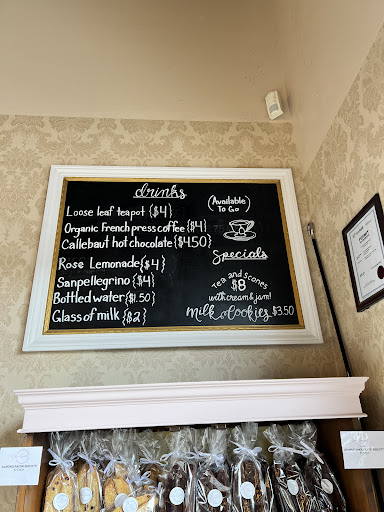 drinks
Loose leaf teapot {$4}
Organic French press coffee {$4}
Callebaut hot chocolate {$4.50}
Rose Lemonade {$4}
Sanpellegrino {$4}
Bottled water {$1.50}
Glass of milk {$2}
(Available
To Go)
Specials
Tea and Scones
$8
with cream & jam!
Milk & Cookies $3.50